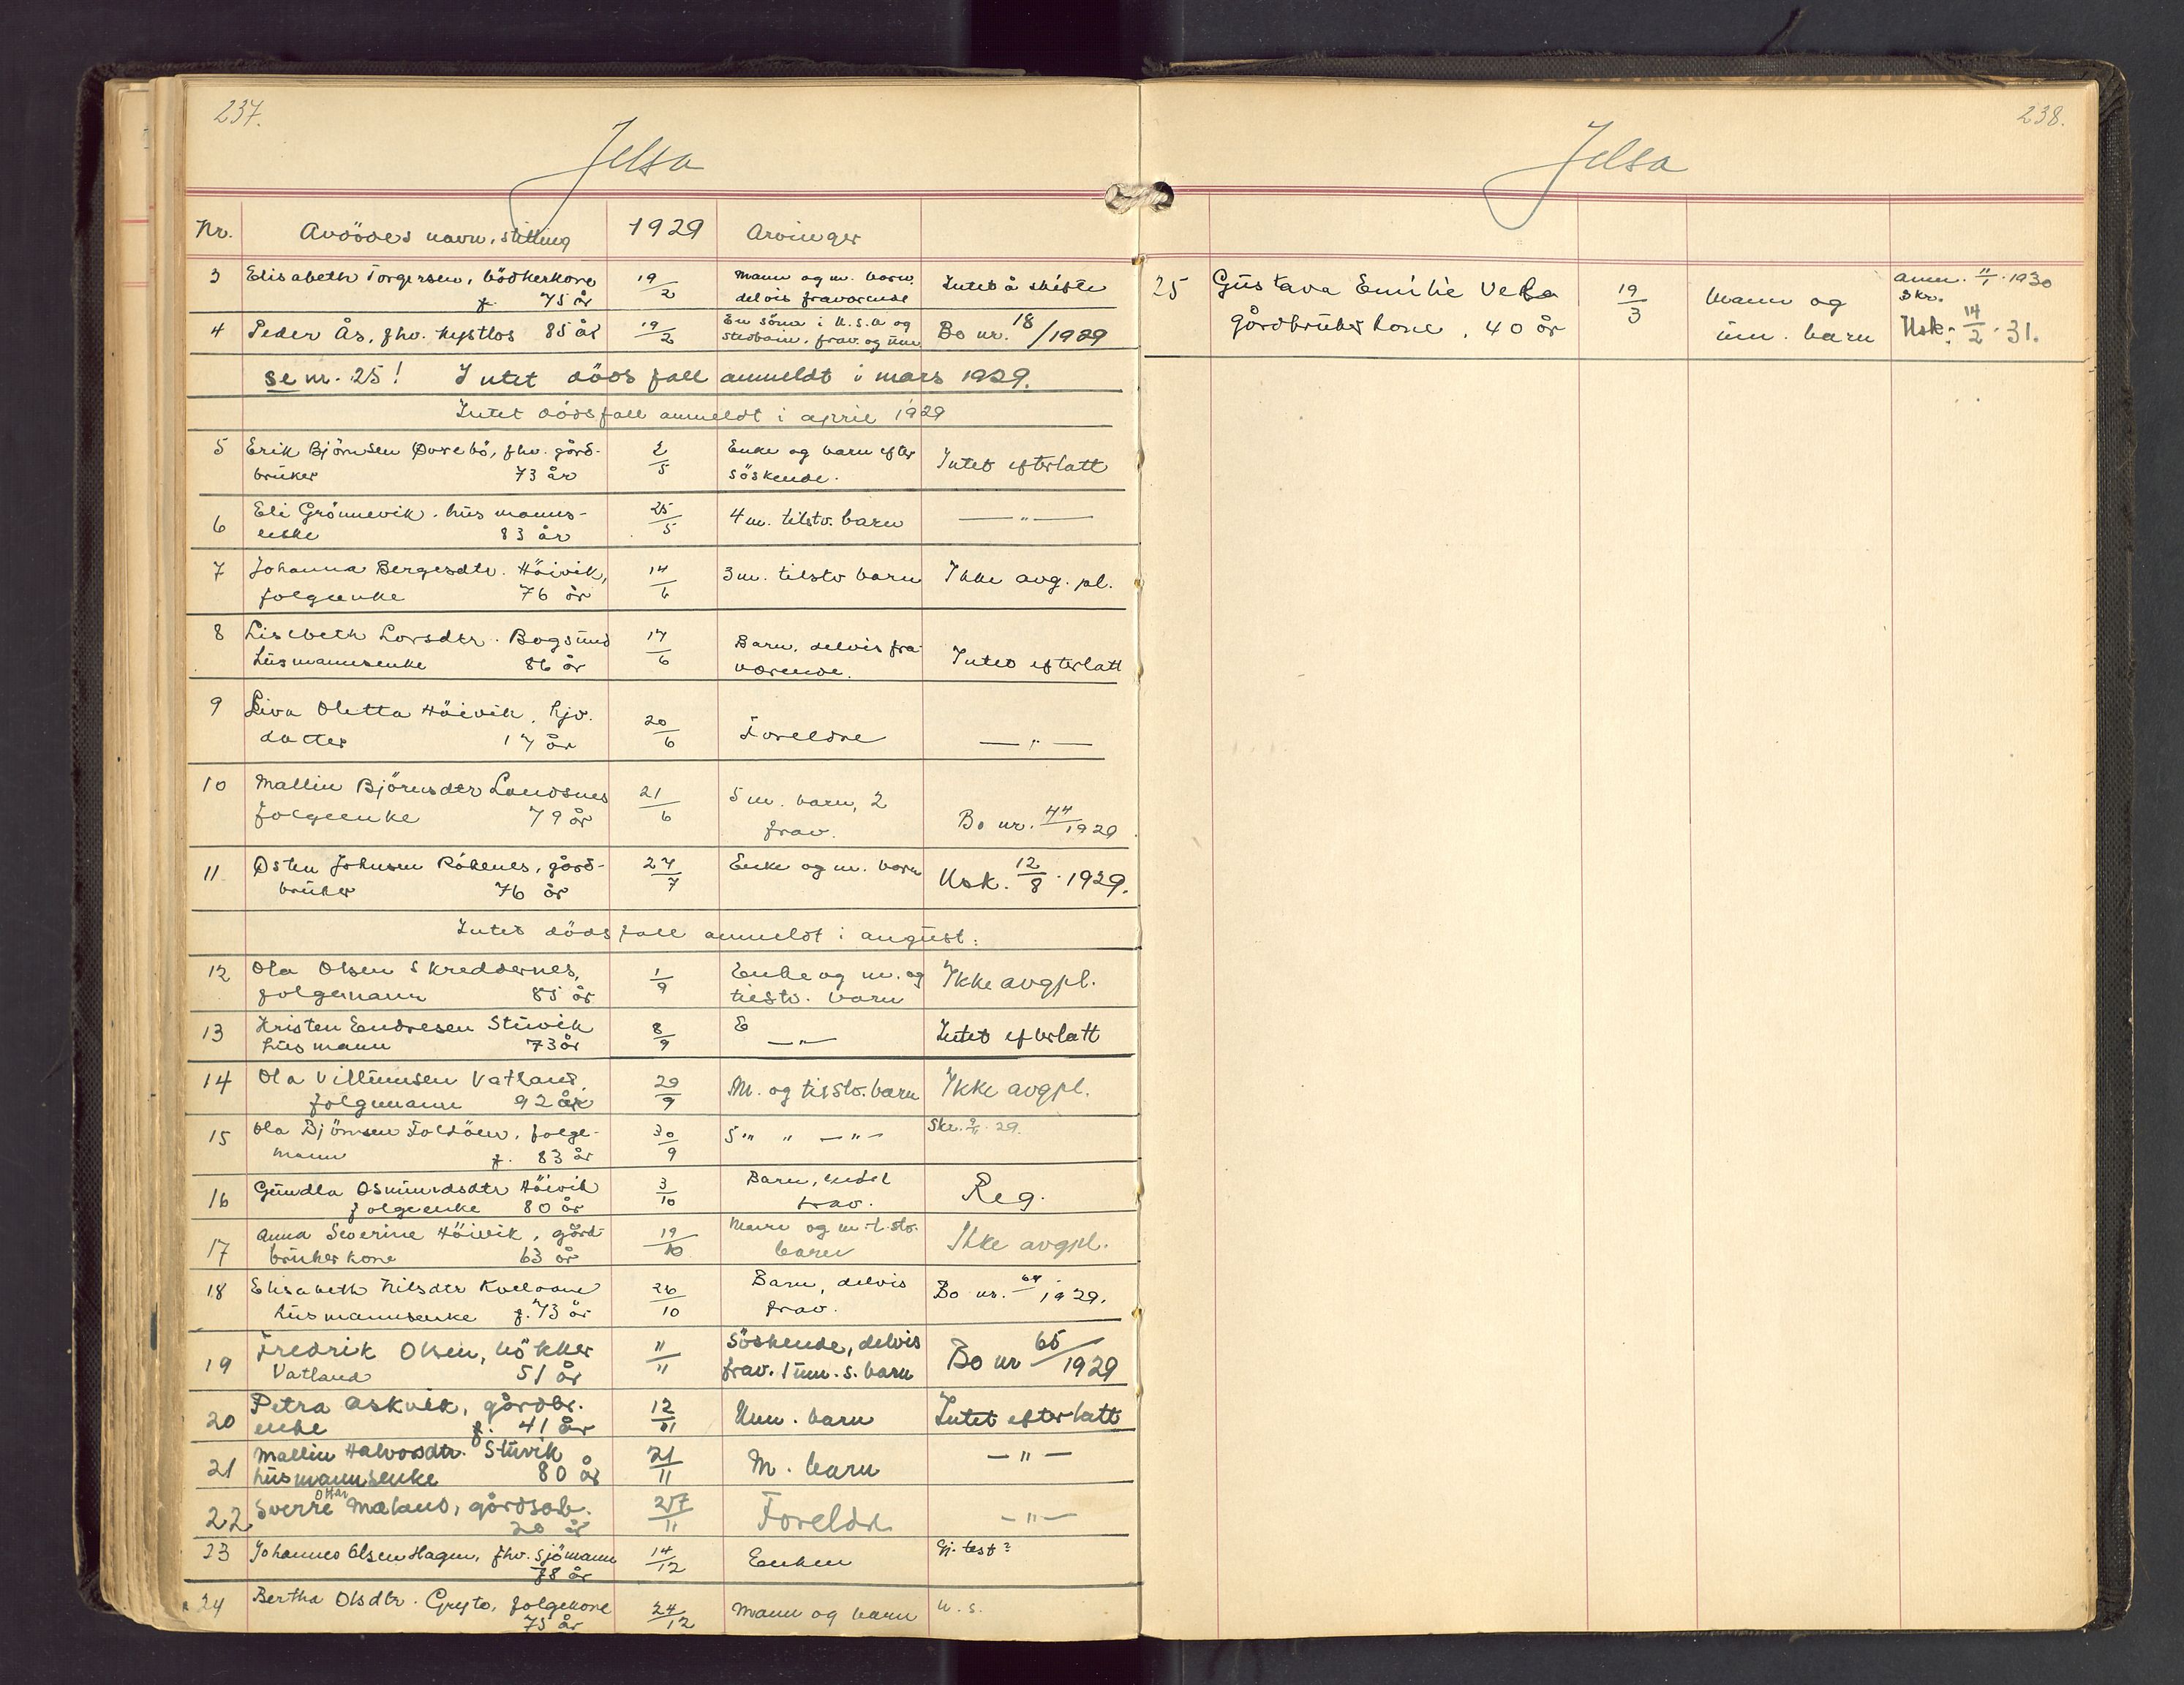 237.
Jelsa
Nr. Avdödes navn, stilling 1929 Arvinger
3 Elisabeth Torgersen, bödkerkone 19/2 Mann og m. barn, Intet å skifte
f. 75 år delvis fraværende
4 Peder Ås, fhv. kystlos 85 år 19/2 En sönn i U.S.A og Bo nr. 18/1929
stedbarn, frav. og um.
se nr. 25! Intet dödsfall anmeldt i mars 1929.
Intet dödsfall anmeldt i april 1929
5 Erik Björnsen Øvrebö, fhv. gård- 2/5 Enke og barn efter Intet efterlatt
bruker 73 år söskende.
6 Eli Grönnevik, husmanns- 25/5 4 m. tilstv. barn — " —
enke 83 år
7 Johanna Bergesdtr. Höivik, 14/6 3 m. tilstv barn Ikke avg. pl.
folgeenke 76 år
8 Lisebeth Larsdtr. Bogsund 17/6 Barn, delvis fra- Intet efterlatt
husmannsenke 86 år værende.
9 Liva Oletta Höivik, hjv. 20/6 Foreldre — " —
datter 17 år
10 Mallin Björnsdtr Landsnes 21/6 5 m. barn, 2 Bo nr. 44/1929
folgeenke 79 år frav.
11 Østen Johnsen Rökenes, gård- 27/7 Enke og m. barn Usk. 12/8 · 1929.
bruker 76 år
Intet dödsfall anmeldt i august.
12 Ola Olsen Skreddernes, 1/9 Enke og m. og Ikke avgpl.
folgemann 85 år tilstv. barn
13 Kristen Endresen Stuvik 8/9 E — " — Intet efterlatt
husmann 73 år
14 Ola Villumsen Vatland, 29/9 M. og tilstv. barn Ikke avgpl.
folgemann 92 år
15 Ola Björnsen Foldöen, folge- 30/9 5 " " — " — Skr. 29.
mann f. 83 år
16 Gundla Osmundsdtr Höivik 3/10 Barn, endel Reg.
folgeenke 80 år frav.
17 Anna Severine Höivik, gård- 19/10 Mann og m. t. stv. Ikke avgpl.
brukerkone 63 år barn
18 Elisabeth Nilsdtr Kvelvane 26/10 Barn, delvis Bo nr. 64/1929.
husmannsenke f. 73 år frav.
19 Fredrik Olsen, bökker 11/11 Söskende, delvis Bo nr 65/1929
Vatland 51 år frav. 1 um. s. barn
20 Petra Askvik, gårdbr. 12/11 Um. barn Intet efterlatt
enke f. 41 år
21 Mallin Halvorsdtr. Stuvik 21/11 M. barn — " —
husmannsenke 80 år
22 Sverre Ottar Mæland, gårdsarb. 27/11 Foreldre — " —
20 år
23 Johannes Olsen Hagen, fhv. sjömann 14/12 Enken Gj. test?
78 år
24 Bertha Olsdtr. Gryte, folgekone 24/12 Mann og barn U. s.
75 år
238.
Jelsa
25 Gustava Emilie Vebo 19/3 Mann og Anm. 11/1 · 1930
Skr.
gårdbrukerkone, 40 år um. barn Usk. 14/2 · 31.